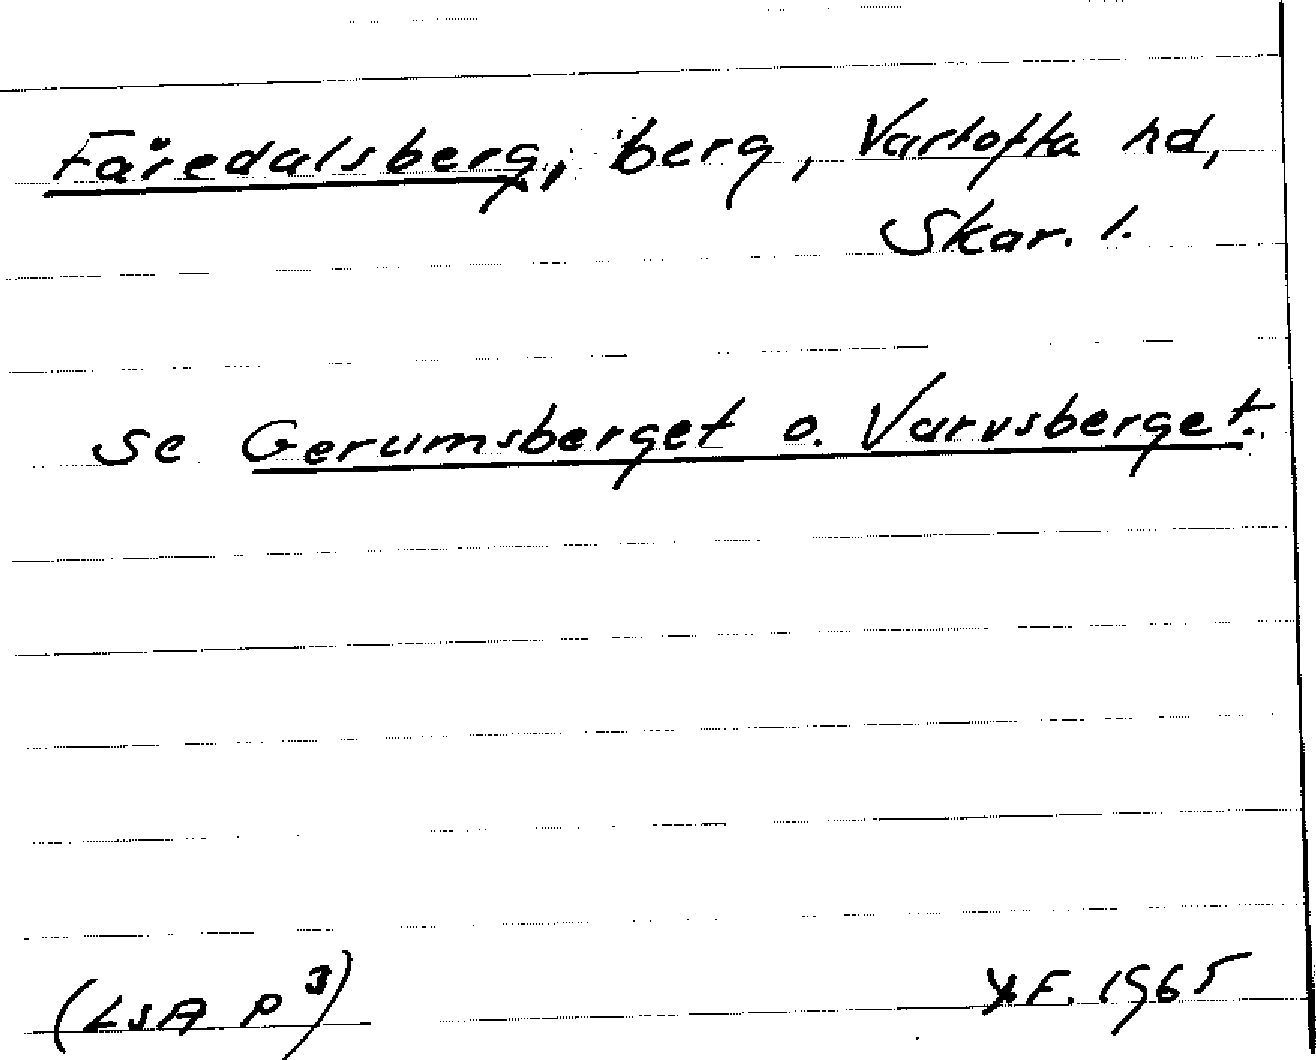 Fåredalsberg, berg, Vartofta hd,
Skar. l.
se Gerumsberget o. Varvsberget.
(LSA P³)
F. 1965